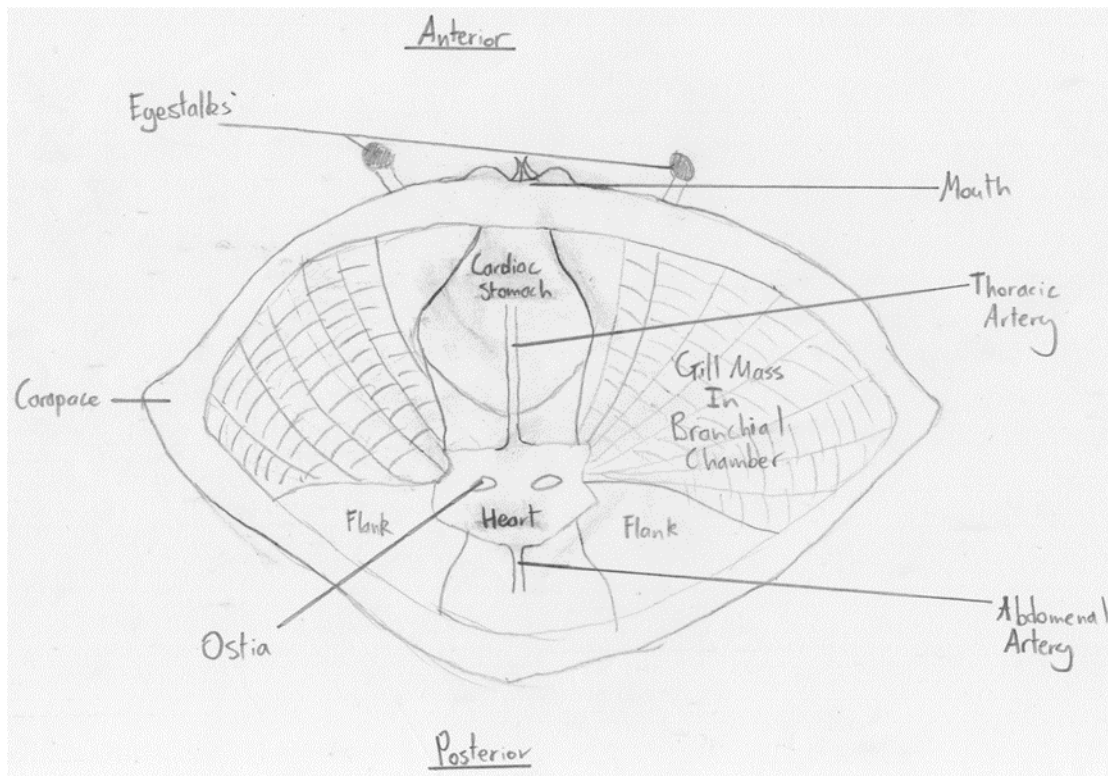 Anterior
Eyestalks
Mouth
Cardiac
Stomach
Thoracic
Artery
Gill Mass
In
Branchial
Chamber
Carapace
Flank
Heart
Flank
Ostia
Abdomenal
Artery
Posterior